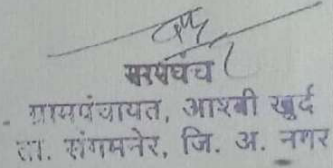 सरपंच
ग्रामपंचायत, आश्वी खुर्द
ता. संगमनेर, जि. अ. नगर